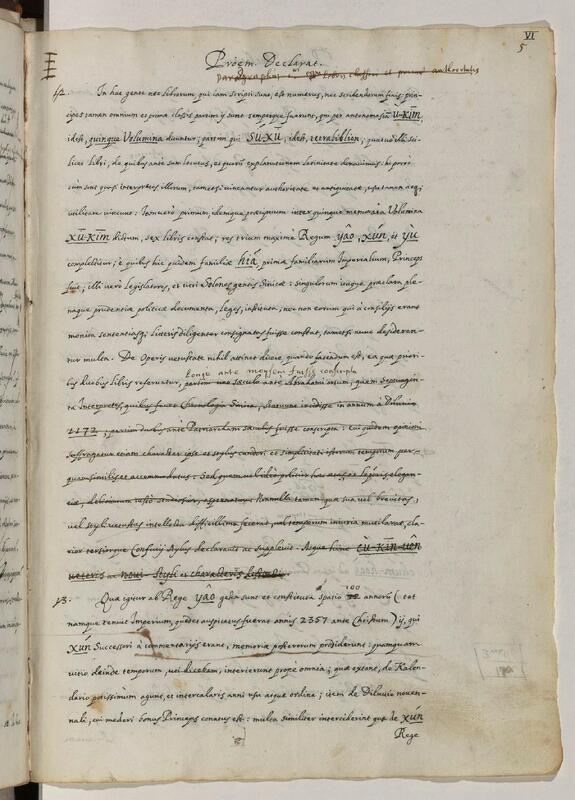 VI
5
Proëm. Declarat.
Paragraphus libris classici et primae authoritatis
§2. In hac gente nec librorum qui iam scripti sunt, est numerus, nec scribendorum finis: prin-
cipes tamen omnium et primae classis partim ij sunt semperque fuerunt, qui per antonomasiam u-kim,
idest, quinque Volumina dicuntur; partim qui Su-xū, idest, tetrabiblion; quatuor illi sci-
licet libri, de quibus ante sum locutus, et quorum explanationem latinitate donavimus: hi porro
cum sint quasi interpretes illorum, tametsi vincantur authoritate et antiquitate, usu tamen ac
utilitate vincunt: Iam vero primum, idemque praecipuum inter quinque memorata Volumina
xū-kīm dictum, sex libris constat; res trium maxime Regum yâo, xún, et yù
complectitur; è quibus hic quidem familiae hia primae familiarum Imperialium, Princeps
fuit; illi verò Legislatores, et veri Solones gentis Sinicae: singulorum itaque praeclara ple-
naque prudentiae politicae documenta, Leges, instituta, nec non eorum qui à consilijs erant
monita sententiasque literis diligenter consignatas fuisse constat, tametsi nunc desideren-
tur multa. De Operis vetustate nihil attinet dicere, quando fatendum est, ea quae priori-
Longe ante moysen fuisse conscripta
bus duobus libris reservatur, partim ante Abrahami ortum, quem Septuagin-
ta Interpretes, quibus favet Chronologia Sinica, statuunt incidisse in annum à Diluvio
1172, partim duobus ante Patriarcham saeculis fuisse conscripta: cui quidem opinioni
suffragatur etiam character ipse et stylus candori et simplicitati istorum temporum per-
quam similis et accommodatus: Sed quamvis
vel styli vetustas intellectu difficillima fecerat, vel temporum iniuria mutilarat, cla-
rior tersiorque Confucij stylus declaravit ac supplevit. Atque hinc cù-kīn-uên
veteris ac novi styli et characteris
§3. Quae igitur ab Rege yâo gesta sunt et constituta spatio 100 annorum (tot
namque tenuit Imperium, quod et auspicatus fuerat annis 2357 ante Christum) ij, qui
xún Successori à commentarijs erant, memoriae posterorum prodiderunt: quamquam
vitio deinde temporum, uti dicebam, interierunt prope omnia; quae extant, de Kalen-
dario potissimum agunt, et intercalaris anni usu atque ordine; item de Diluvio noven-
nali, cui mederi bonus Princeps conatus est: multa similiter interciderunt quae de xún
Rege